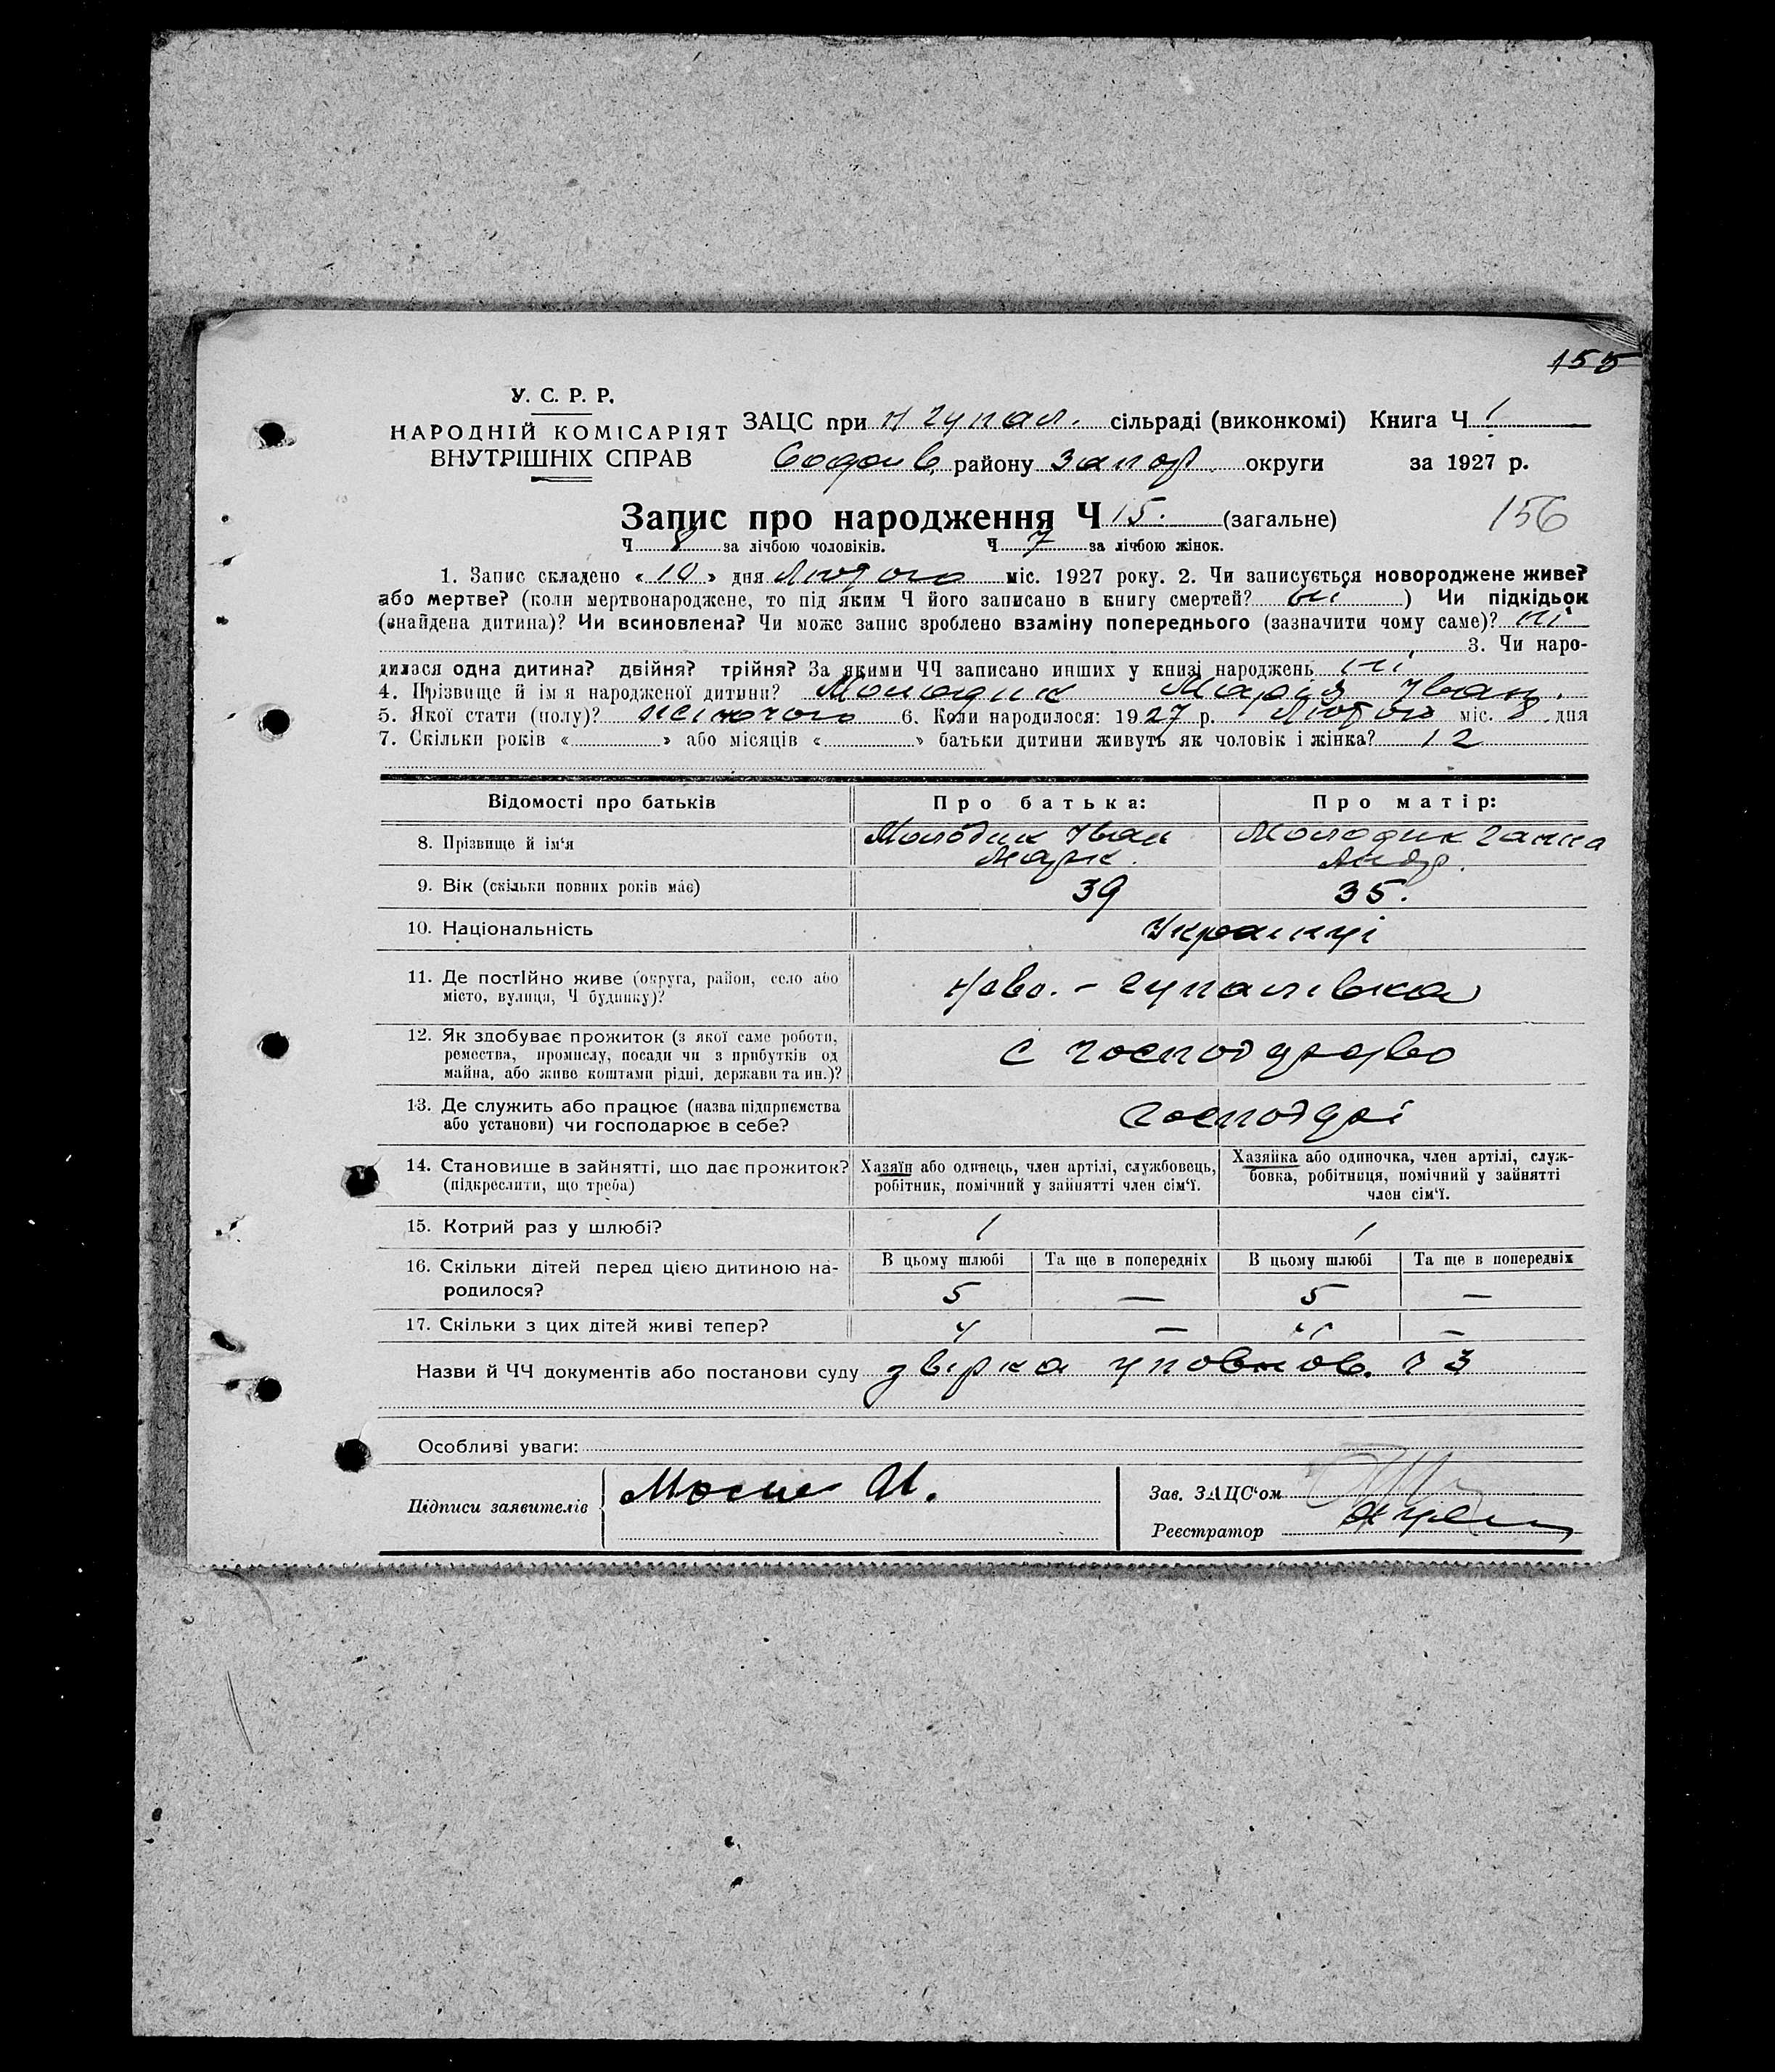 155
У. С. Р. Р.
НАРОДНІЙ КОМІСАРІЯТ
ВНУТРІШНІХ СПРАВ
ЗАЦС при Н Гупал. сільраді (виконкомі) Книга Ч 1
району Запор. округи за 1927 р.
Запис про народження Ч 15. (загальне)
156
Ч 8 за лічбою чоловіків. Ч 7 за лічбою жінок.
1. Запис складено « 10 » дня Лютого міс. 1927 року. 2. Чи записується новороджене живе?
або мертве? (коли мертвонароджене, то під яким Ч його записано в книгу смертей? ні ) Чи підкідьок
(знайдена дитина)? Чи всиновлена? Чи може запис зроблено взаміну попереднього (зазначити чому саме)? ні
3. Чи наро-
дилася одна дитина? двійня? трійня? За якими ЧЧ записано инших у книзі народжень ні
4. Прізвище й ім я народженої дитини? Молодик Марія Іван.
5. Якої стати (полу)? жіночого 6. Коли народилося: 1927 р. Лютого міс. 8 дня
7. Скільки років « » або місяців « » батьки дитини живуть як чоловік і жінка? 12
Відомості про батьків Про батька: Про матір:
8. Прізвище й ім'я Молодик Іван Марк. Молодик Ганна Андр.
9. Вік (скільки повних років має) 39 35.
10. Національність Українці
11. Де постійно живе (округа, район, село або
місто, вулиця, Ч будинку)? Ново.-Гупалівка
12. Як здобуває прожиток (з якої саме роботи,
ремества, промислу, посади чи з прибутків од
майна, або живе коштами рідні, держави та ин.)? С господарство
13. Де служить або працює (назва підприємства
або установи) чи господарює в себе?
14. Становище в зайнятті, що дає прожиток?
(підкреслити, що треба)
Хазяїн або одинець, член артілі, службовець,
робітник, помічний у зайнятті член сім'ї.
Хазяйка або одиночка, член артілі, служ-
бовка, робітниця, помічний у зайнятті
член сім'ї.
15. Котрий раз у шлюбі? 1 1
16. Скільки дітей перед цією дитиною на-
родилося?
В цьому шлюбі Та ще в попередніх В цьому шлюбі Та ще в попередніх
5 — 5 —
17. Скільки з цих дітей живі тепер? 4 — 4 —
Назви й ЧЧ документів або постанови суду звірка уповнов. Ч 3
Особливі уваги:
Підписи заявителів
Зав. ЗАЦС'ом
Реєстратор